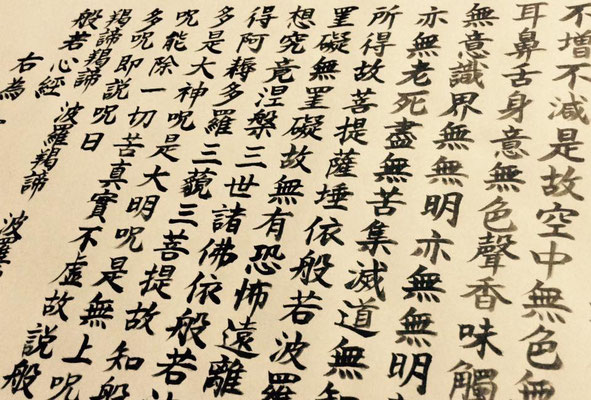 不增不減是故空中無色無
耳鼻舌身意無色聲香味觸
無意識界無無明亦無無明
亦無老死盡無苦集滅道無知
所得故菩提薩埵依般若波羅
罣礙無罣礙故無有恐怖遠離
想究竟涅槃三世諸佛依般若
得阿耨多羅三藐三菩提故知般
多是大神呪是大明呪是無上呪
呪能除一切苦真實不虛故説般
多呪即説呪曰
羯諦羯諦 波羅羯諦 波羅
般若心經
右為